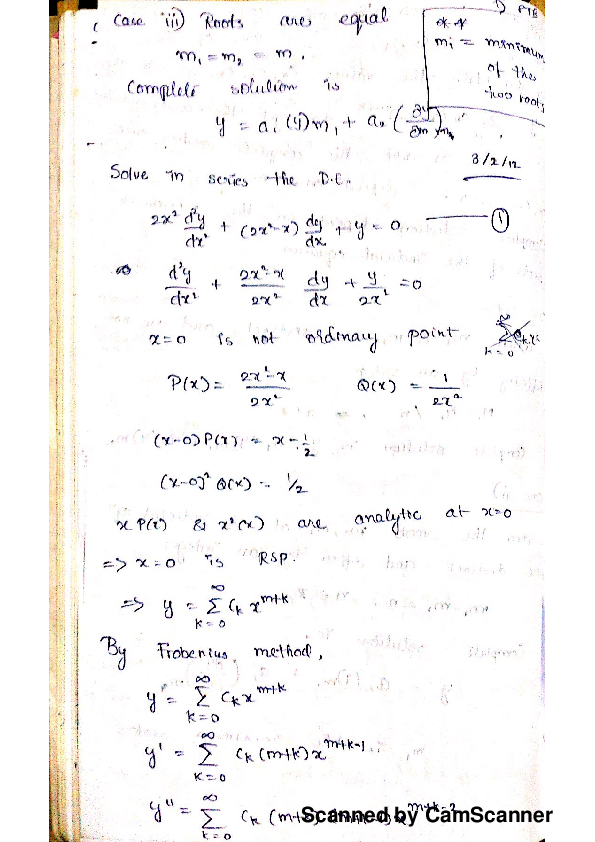 Case iii) Roots are equal
m₁ = m₂ = m.
Complete solution is
y = a₁ (y)m₁ + a₂ (∂y/∂m)m₂
** 
mi = minimum
of the
two roots
3/2/12
Solve in series the D.E.
2x² d²y/dx² + (2x²-x) dy/dx + y = 0 ——— ①
⇒ d²y/dx² + (2x²-x)/2x² dy/dx + y/2x² = 0
x=0 is not ordinary point
P(x) = (2x²-x)/2x² Q(x) = 1/2x²
(x-0) P(x) = x - 1/2
(x-0)² Q(x) = 1/2
x P(x) & x²(x) are analytic at x=0
=> x=0 is RSP.
=> y = ∞ Σ k=0 Ck x^m+k
By Frobenius method,
y = ∞ Σ k=0 Ck x^m+k
y' = ∞ Σ k=0 Ck (m+k) x^m+k-1
y'' = ∞ Σ k=0 Ck (m+k) x^m+k-2
Scanned by CamScanner